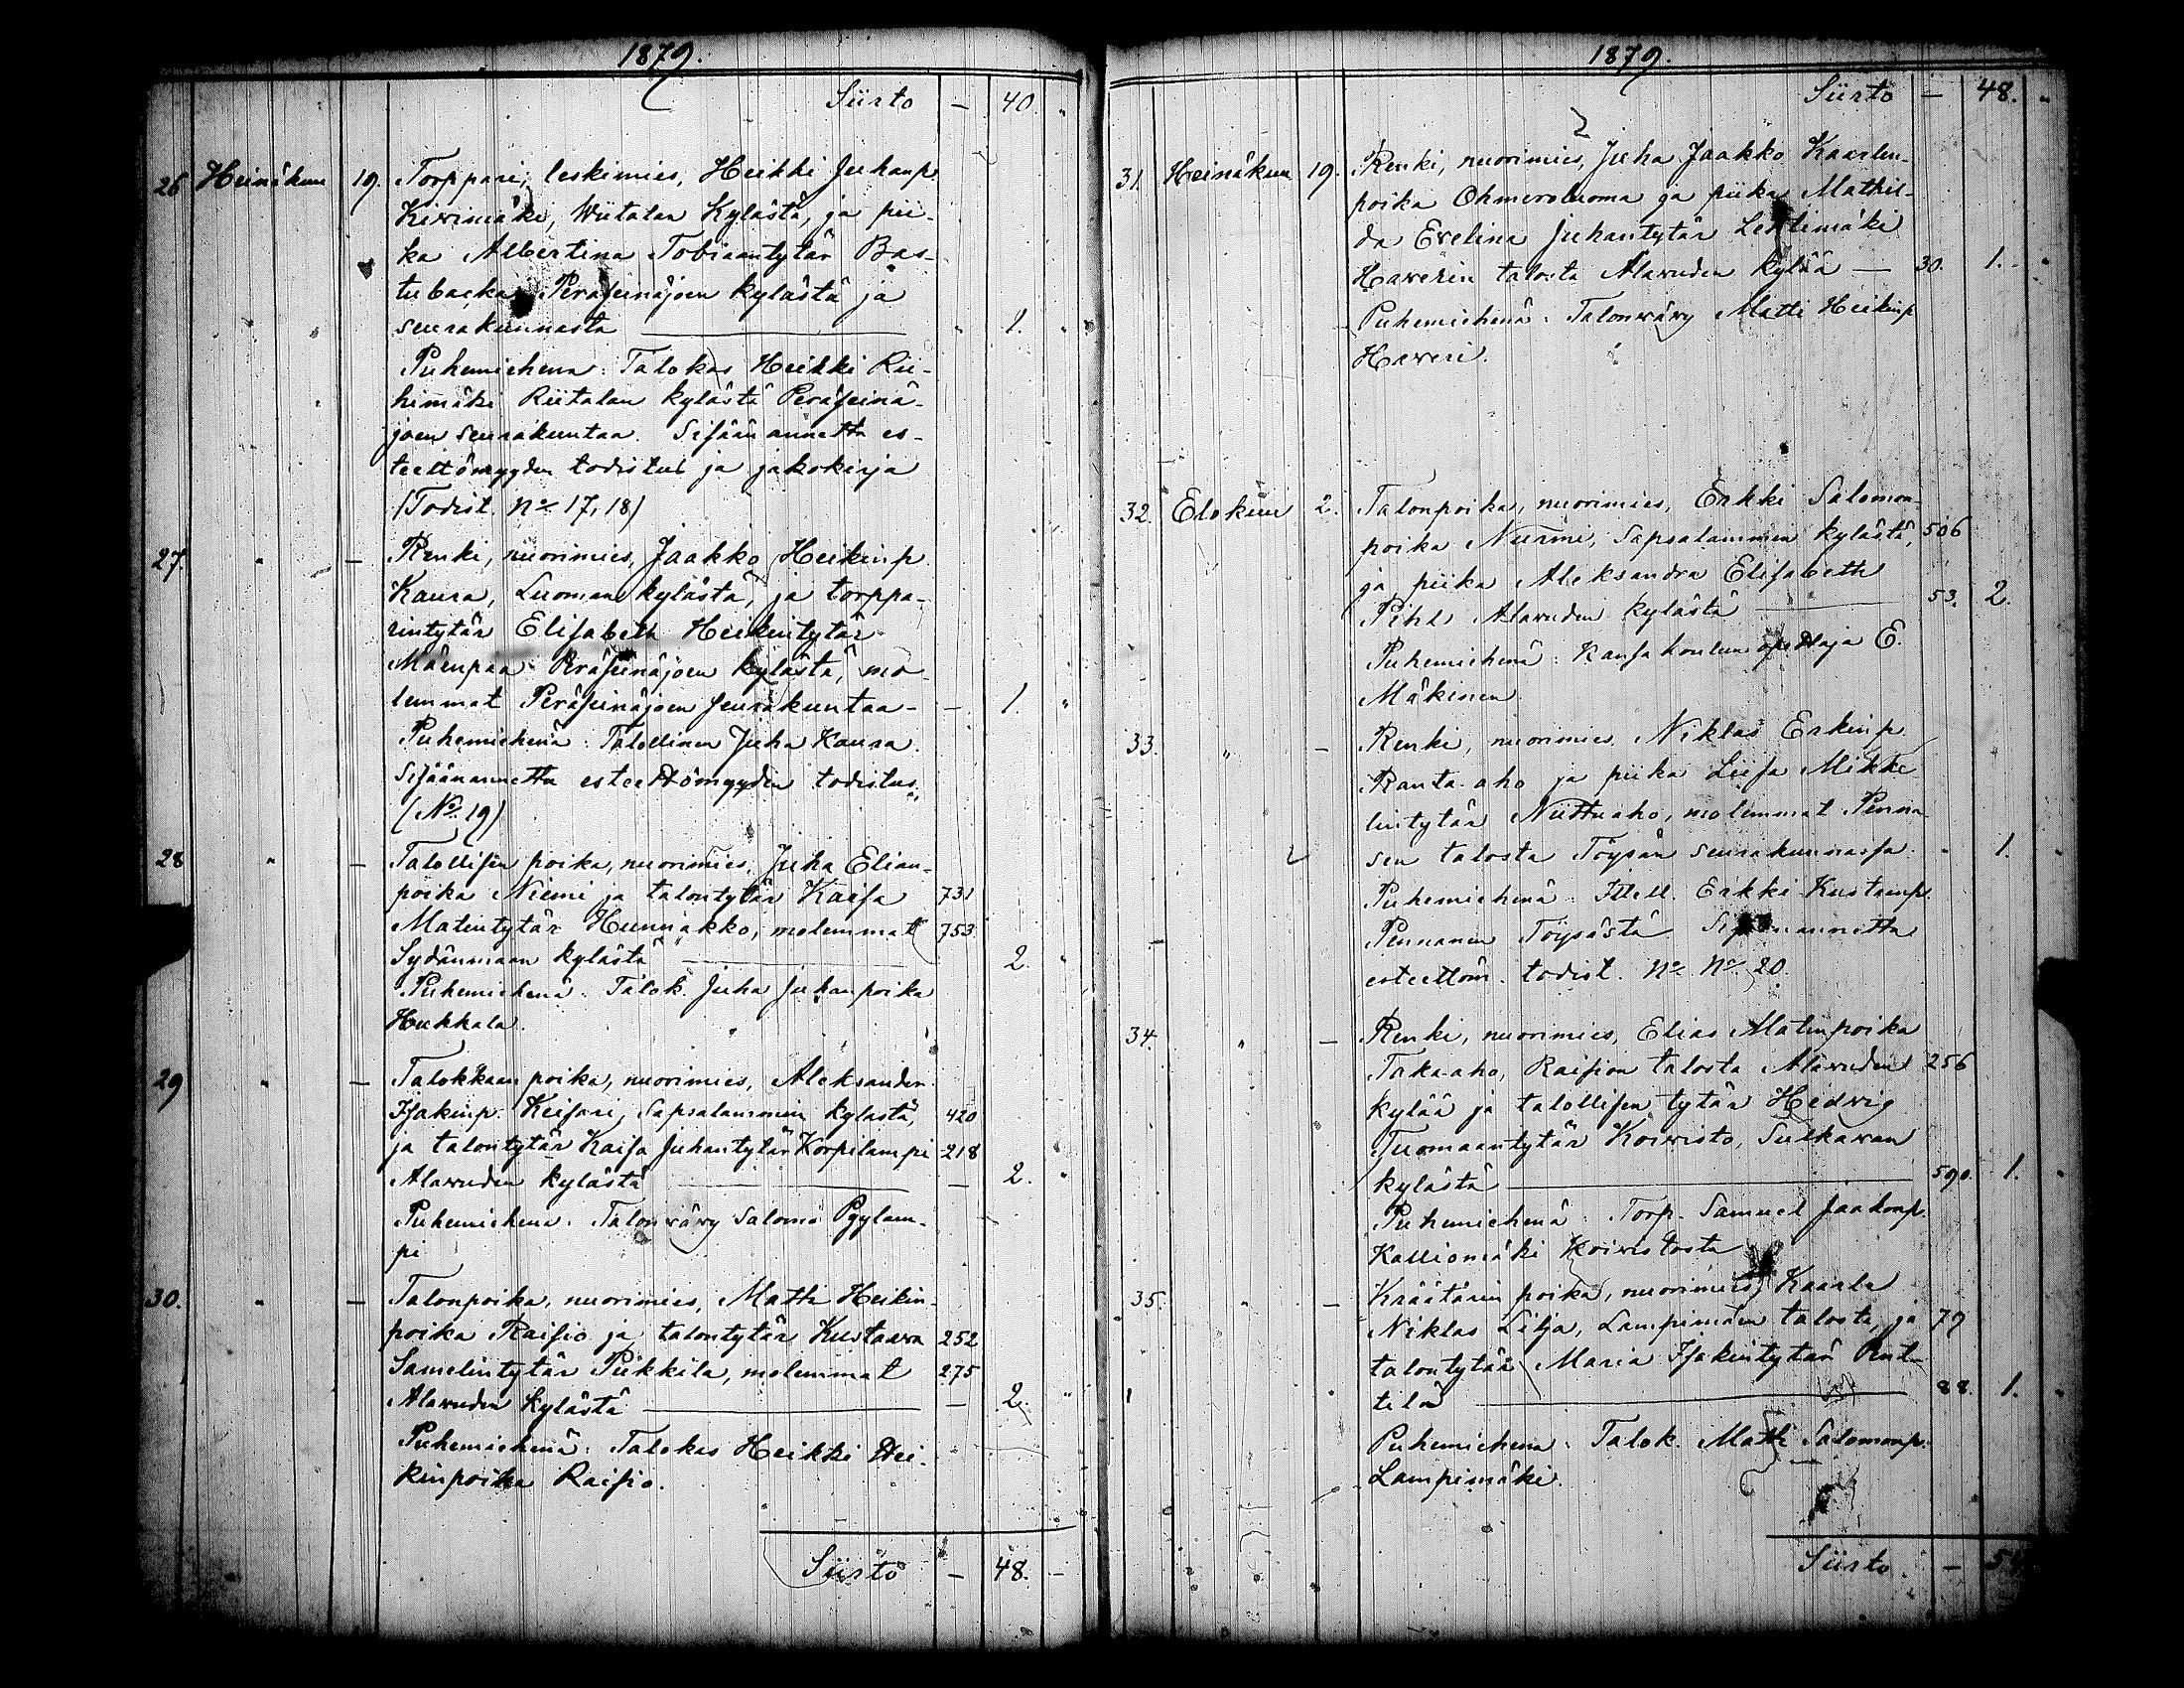 1879.
Siirto — 40. "
26 Heinäkuu 19. Torppari, leskimies, Heikki Juhanp.
Kivimäki, Wiitalan Kylästä, ja pii-
ka Albertina Tobiaantytär Bas-
tubacka Peräseinäjoen kylästä ja
seurakunnasta — " 1. "
Puhemiehenä: Talokas Heikki Rii-
himäki Riitalan kylästä Peräseinä-
joen seurakuntaa. Sisään annettu es-
teettömyyden todistus ja jakokirja
(Todist. No 17, 18)
27. " — Renki, nuorimies, Jaakko Heikinp.
Kaura, Luoman kylästä, ja torppa-
rintytär Elisabeth Heikintytär
Mäenpää Peräseinäjoen kylästä, mo-
lemmat Peräseinäjoen seurakuntaa — — 1. "
Puhemiehenä: Talollinen Juha Kaura.
Sisäänannettu esteettömyyden todistus.
(No 19)
28 " — Talollisen poika, nuorimies, Juha Elian-
poika Niemi ja talontytär Kaisa 731
Matintytär Hunnakko, molemmat 753.
Sydänmaan kylästä — 2. "
Puhemiehenä: Talok. Juha Juhanpoika
Hukkala.
29 " — Talokkaan poika, nuorimies, Aleksander
Isakinp. Keisari, Sapsalammin kylästä, 420
ja talontytär Kaisa Juhantytär Korpilampi 218
Alavuden kylästä — — 2. "
Puhemiehenä: Talonvävy Salomo Pyylam-
pi
30. " — Talonpoika, nuorimies, Matti Heikin-
poika Raisio ja talontytär Kustaava 252
Samelintytär Pukkila, molemmat 275
Alavuden kylästä — — 2. "
Puhemiehenä: Talokas Heikki Hei-
kinpoika Raisio.
Siirto — 48. —
1879.
Siirto — 48. "
31. Heinäkuu 19. Renki, nuorimies, Juha Jaakko Kaarlen-
poika Ohmeroluoma ja piika Mathil-
da Evelina Juhantytär Lehtimäki
Haverin talosta Alavuden kylää — 30. 1. "
Puhemiehenä: Talonvävy Matti Heikinp
Haveri.
32. Elokuu 2. Talonpoika, nuorimies, Erkki Salomon-
poika Nurmi, Sapsalammin kylästä, 506
ja piika Aleksandra Elisabeth
Pihl Alavuden kylästä — 53. 2.
Puhemiehenä: Kansakoulun opettaja E.
Mäkinen.
33. " — Renki, nuorimies, Niklas Erkinp.
Ranta-aho ja piika Liisa Mikke-
lintytär Niittuaho, molemmat Penna-
sen talosta Töysän seurakunnassa. " 1. "
Puhemiehenä: Itsell. Erkki Kustaanp.
Pennanen Töysästä. Sisäänannettu
esteettöm. todist. No No 20.
34. " — Renki, nuorimies, Elias Matinpoika
Taka-aho, Raision talosta Alavuden 256
kylää ja talollisen tytär Hedvig
Tuomaantytär Koivisto, Sulkavan
kylästä — 590. 1. "
Puhemiehenä: Torp. Samuel Jaakonp.
Kalliomäki Koivistosta
35. " — Kräätärin poika, nuorimies, Kaarle
Niklas Lilja, Lampimäen talosta, ja 77
talontytär Maria Isakintytär Unt-
tila — 88. 1. "
Puhemiehenä: Talok. Matti Salomonp.
Lampimäki.
Siirto —